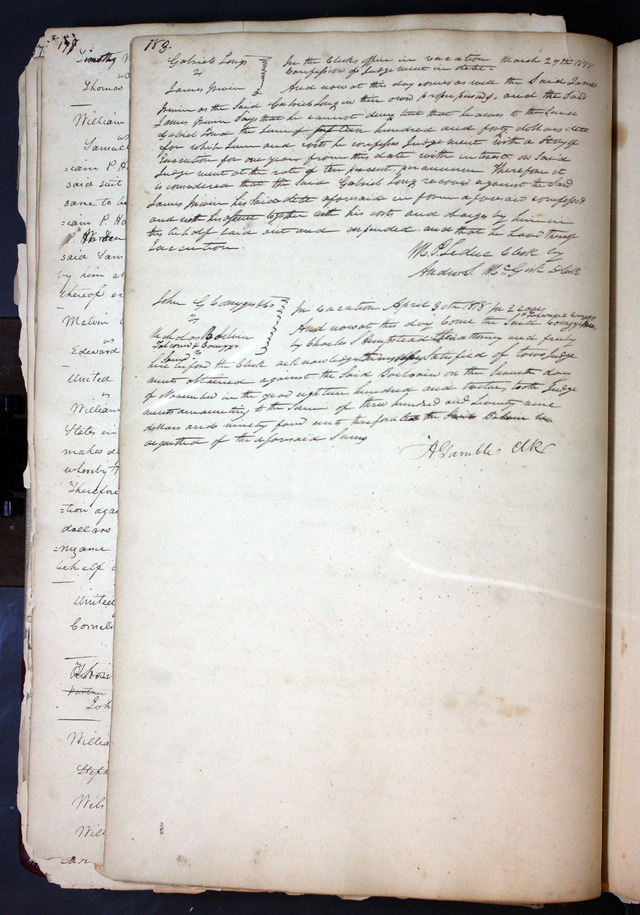 183.
Gabriel Long
vs
James Irwin
In the Clerks office in vacation March 27th 1818
Confession of Judgement in debt.
And now at this day comes as well the Said James
Irwin as the Said Gabriel Long in their own proper persons, and the Said
James Irwin Says that he cannot deny but that he owes to the Said
Gabriel Long the Sum of fifteen hundred and forty dollars debt
for which Sum and costs he confesses Judgement with a Stay of
Execution for one year from this date with interest on Said
Judgement at the rate of ten percent per annum Therefore it
is considered that the Said Gabriel Long recover against the Said
James Irwin his Said debt aforesaid in form aforesaid confessed
and with his together with his costs and charges by him in
this behalf laid out and expended and that he have thereof
Execution.
M. P. Leduc Clerk by
Andrew S. McGirk D Clk
John G Comegys &co
vs
Nicholas Boilvin
In Vacation April 30th 1818
And now at this day Come the Said
by Charles S Hempstead attorney and freely
here before the Clerk acknowledge Satisfied of Judge
ments obtained against the Said Boilvin on the Seventh day
of November in the year eighteen hundred and twelve, both Judge
ments amounting to the Sum of three hundred and Seventy nine
dollars and ninety four cents therefore let the Said Boilvin be
acquitted of the aforesaid Sums
A Gamble Clk
Timothy
Thomas
William
Samuel
=iam P Ha
said suit
same to be
=iam P Ha
P Harden
said Sam
by him a
thereof ex
Melvin
Edward
United
William
States in
makes de
whereby
Therefore
=tion aga
dollars
behalf
United
Cornel
partner
Joh
Willia
Steph
Wils
Will